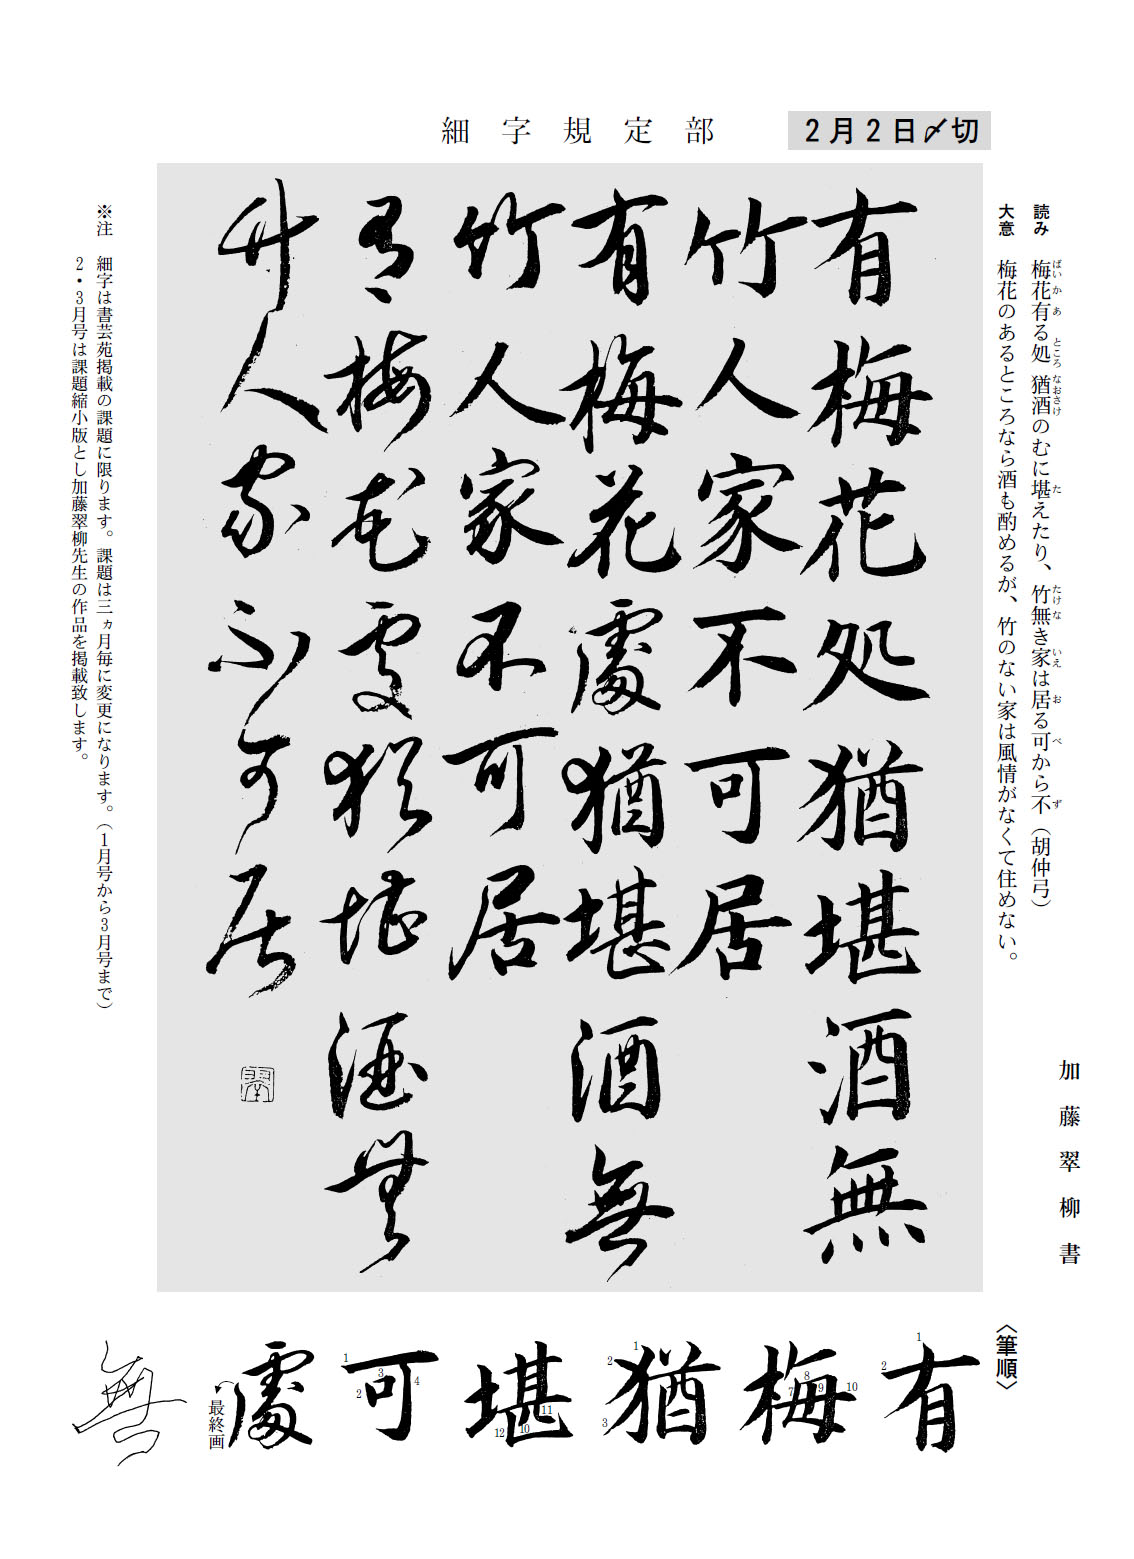 細字規定部
2月2日〆切
読み 梅花有る処 猶酒のむに堪えたり、竹無き家は居る可から不（胡仲弓）
大意 梅花のあるところなら酒も酌めるが、竹のない家は風情がなくて住めない。
加藤翠柳書
有梅花処猶堪酒無
竹人家不可居
有梅花處猶堪酒無
竹人家不可居
有梅花處猶堪酒無
竹人家不可居
※注 細字は書芸苑掲載の課題に限ります。課題は三ヵ月毎に変更になります。（1月号から3月号まで）
2・3月号は課題縮小版とし加藤翠柳先生の作品を掲載致します。
〈筆順〉
有 1 2
梅 7 8 9 10
猶 1 2 3
堪 10 11 12
可 1 2 3 4
處 最終画
無